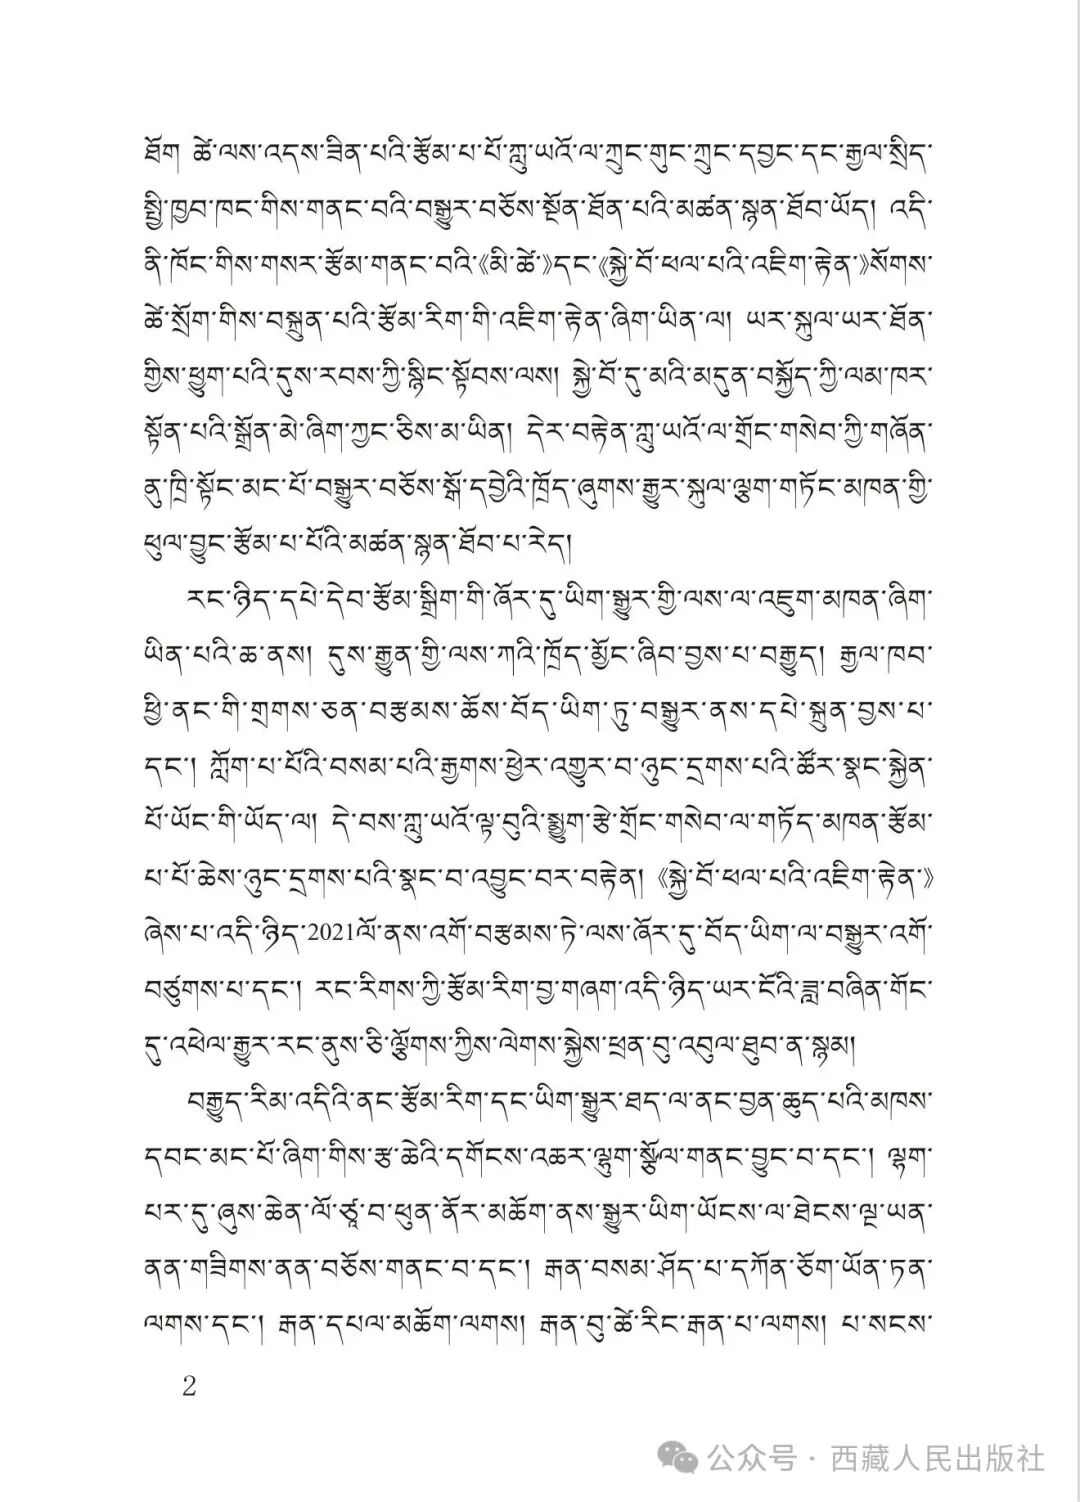 ཐོག ཚེ་ལས་འདས་ཟིན་པའི་རྩོམ་པ་པོ་ཀླུ་ཡའོ་ལ་ཀྲུང་གུང་ཀྲུང་དབྱང་དང་རྒྱལ་སྲིད་
སྤྱི་ཁྱབ་ཁང་གིས་གནང་བའི་བསྒྱུར་བཅོས་སྔོན་ཐོན་པའི་མཚན་སྙན་ཐོབ་ཡོད། འདི་
ནི་ཁོང་གིས་གསར་རྩོམ་གནང་བའི་《མི་ཚེ་》དང་《སྐྱེ་བོ་ཕལ་པའི་འཇིག་རྟེན་》སོགས་
ཚེ་སྲོག་གིས་བསྐྲུན་པའི་རྩོམ་རིག་གི་འཇིག་རྟེན་ཞིག་ཡིན་ལ། ཡར་སྐུལ་ཡར་ཐོན་
གྱིས་ཕྱུག་པའི་དུས་རབས་ཀྱི་སྙིང་སྟོབས་ལས། སྐྱེ་བོ་དུ་མའི་མདུན་བསྐྱོད་ཀྱི་ལམ་ཁར་
སྟོན་པའི་སྒྲོན་མེ་ཞིག་ཀྱང་ཅིས་མ་ཡིན། དེར་བརྟེན་ཀླུ་ཡའོ་ལ་གྲོང་གསེབ་ཀྱི་གཞོན་
ནུ་ཁྲི་སྟོང་མང་པོ་བསྒྱུར་བཅོས་སྒོ་དབྱེའི་ཁྲོད་ཞུགས་རྒྱུར་སྐུལ་ལྕག་གཏོང་མཁན་གྱི་
ཕུལ་བྱུང་རྩོམ་པ་པོའི་མཚན་སྙན་ཐོབ་པ་རེད།
རང་ཉིད་དཔེ་དེབ་རྩོམ་སྒྲིག་གི་ཞོར་དུ་ཡིག་སྒྱུར་གྱི་ལས་ལ་འཇུག་མཁན་ཞིག་
ཡིན་པའི་ཆ་ནས། དུས་རྒྱུན་གྱི་ལས་ཀའི་ཁྲོད་མྱོང་ཞིབ་བྱས་པ་བརྒྱུད། རྒྱལ་ཁབ་
ཕྱི་ནང་གི་གྲགས་ཅན་བརྩམས་ཆོས་བོད་ཡིག་ཏུ་བསྒྱུར་ནས་དཔེ་སྐྲུན་བྱས་པ་
དང་། ཀློག་པ་པོའི་བསམ་པའི་རྒྱགས་ཕྱེར་འགྱུར་བ་ཉུང་དྲགས་པའི་ཚོར་སྣང་སྐྱེན་
པོ་ཡོང་གི་ཡོད་ལ། དེ་བས་ཀླུ་ཡའོ་ལྟ་བུའི་སྨྱུག་རྩེ་གྲོང་གསེབ་ལ་གཏོད་མཁན་རྩོམ་
པ་པོ་ཆེས་ཉུང་དྲགས་པའི་སྣང་བ་འབྱུང་བར་བརྟེན། 《སྐྱེ་བོ་ཕལ་པའི་འཇིག་རྟེན་》
ཞེས་པ་འདི་ཉིད་2021ལོ་ནས་འགོ་བརྩམས་ཏེ་ལས་ཞོར་དུ་བོད་ཡིག་ལ་བསྒྱུར་འགོ་
བཙུགས་པ་དང་། རང་རིགས་ཀྱི་རྩོམ་རིག་བྱ་གཞག་འདི་ཉིད་ཡར་ངོའི་ཟླ་བཞིན་གོང་
དུ་འཕེལ་རྒྱུར་རང་ནུས་ཅི་ལྕོགས་ཀྱིས་ལེགས་སྐྱེས་ཕྲན་བུ་འབུལ་ཐུབ་ན་སྙམ།
བརྒྱུད་རིམ་འདིའི་ནང་རྩོམ་རིག་དང་ཡིག་སྒྱུར་ཐད་ལ་ནང་བྱན་ཆུད་པའི་མཁས་
དབང་མང་པོ་ཞིག་གིས་རྩ་ཆེའི་དགོངས་འཆར་ལྷུག་སྩོལ་གནང་བྱུང་བ་དང་། ལྷག་
པར་དུ་ཞུས་ཆེན་ལོ་ཙཱ་བ་ཕུན་ནོར་མཆོག་ནས་སྒྱུར་ཡིག་ཡོངས་ལ་ཐེངས་ལྔ་ཡན་
ནན་གཟིགས་ནན་བཅོས་གནང་བ་དང་། རྒན་བསམ་ཤོད་པ་དཀོན་ཅོག་ཡོན་ཏན་
ལགས་དང་། རྒན་དཔལ་མཆོག་ལགས། རྒན་བུ་ཚེ་རིང་རྒན་པ་ལགས། པ་སངས་
2
公众号 · 西藏人民出版社